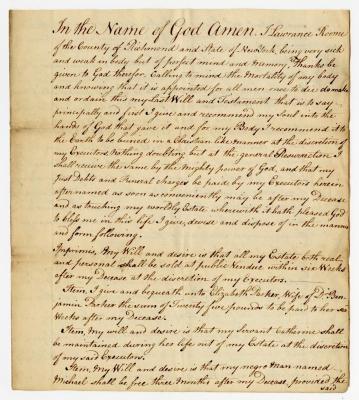 In the Name of God Amen. I Lawrance Roome
of the County of Richmond and State of New York, being very sick
and weak in body but of perfect mind and memory, Thanks be
given to God therefor. Calling to mind the Mortality of my body
and knowing that it is appointed for all men once to die do make
and ordain this my Last Will and Testament that is to say
principally and first I give and recommend my Soul into the
hands of God that gave it and for my Body I recommend it to
the Earth to be buried in a Christian like manner at the discretion of
my Executors, nothing doubting but at the general Resurrection I
shall receive the same by the Mighty power of God, and that my
Just Debts and Funeral charges be paid by my Executors herein
after named as soon as conveniently may be after my Decease
and as touching my worldly Estate wherewith it hath pleased God
to bless me in this life I give, devise and dispose of in the manner
and form following.
Imprimis, My Will and desire is that all my Estate both real
and personal shall be sold at public Vendue within six Weeks
after my Decease at the discretion of my Executors.
Item, I give and bequeath unto Elizabeth Parker, Wife of Dr. Ben-
jamin Parker the sum of Twenty five pounds to be paid to her six
Weeks after my Decease.
Item, My will and desire is that my Servant Catherine shall
be maintained during her life out of my Estate at the discretion
of my said Executors.
Item, My Will and desire is that my negro Man named
Michael shall be free three Months after my Decease, provided the
said